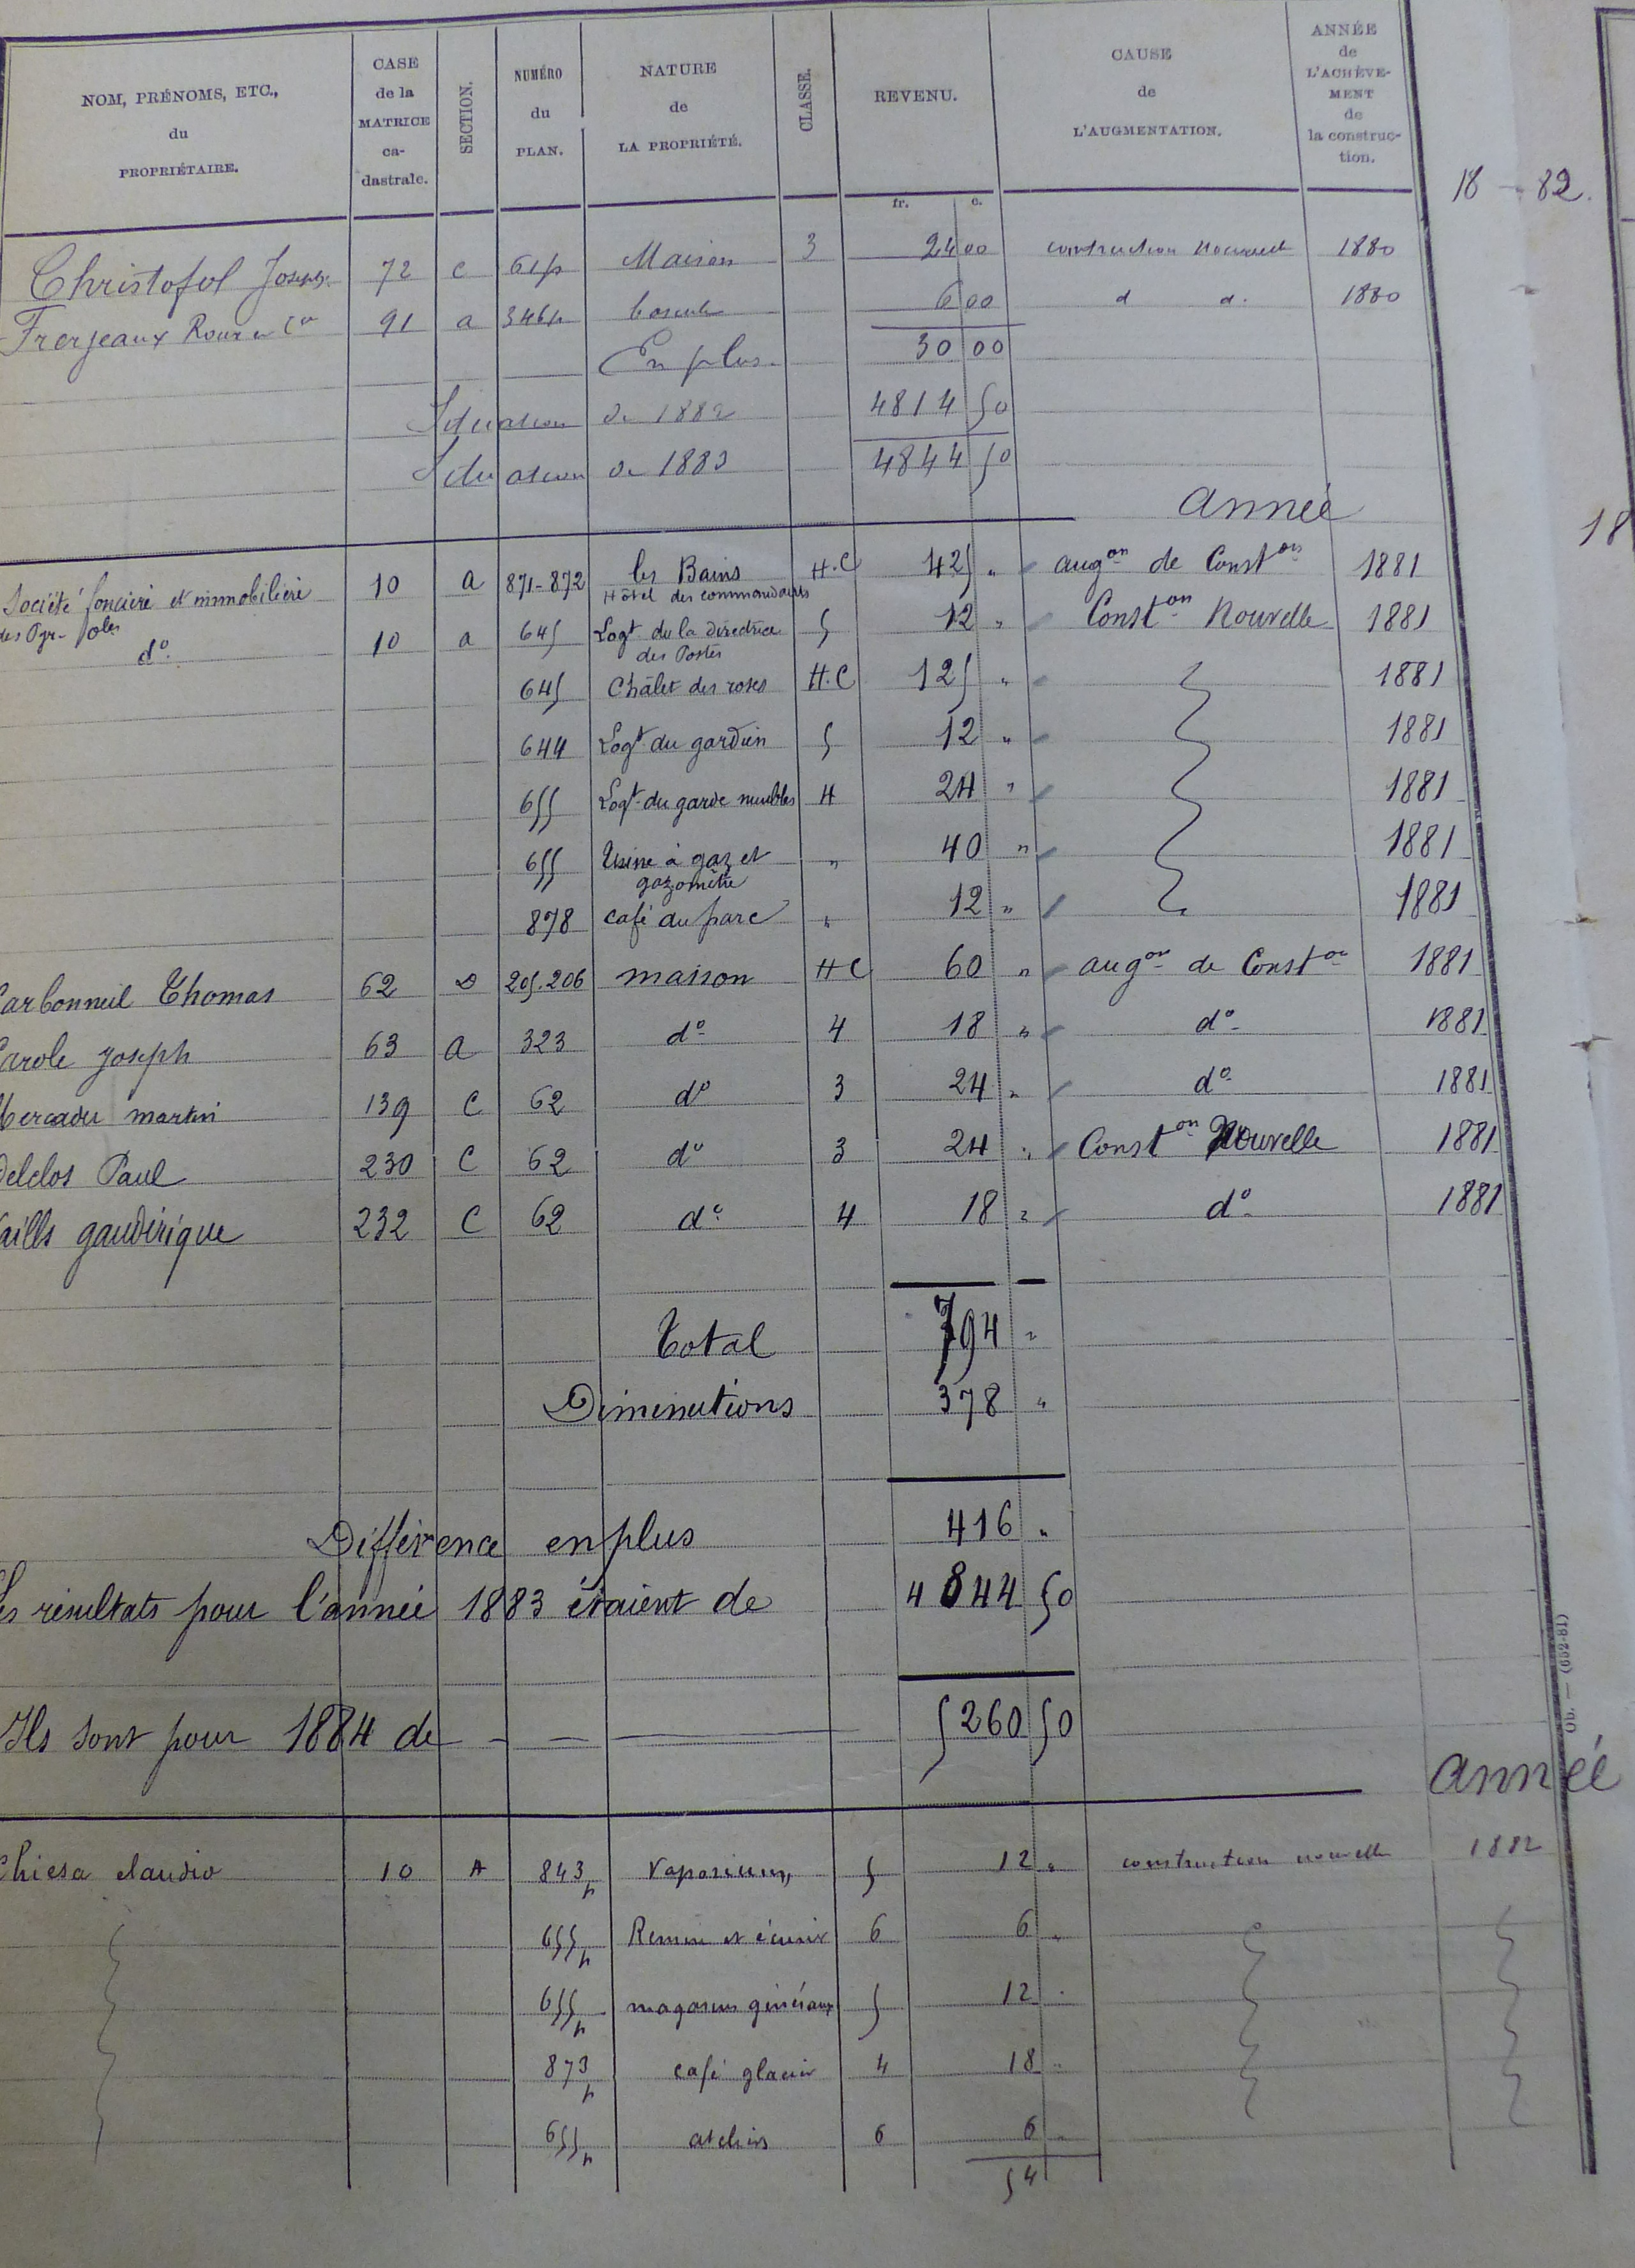 NOM, PRÉNOMS, ETC., du PROPRIÉTAIRE. CASE de la MATRICE ca-dastrale. SECTION. NUMÉRO du PLAN. NATURE de LA PROPRIÉTÉ. CLASSE. REVENU. CAUSE de L'AUGMENTATION. ANNÉE de L'ACHÈVE-MENT de la construc-tion.
18 - 82.
fr. c.
Christofol Joseph 72 c 61p Maison 3 24 00 construction nouvelle 1880
Frerjeaux Roux et Cie 91 a 346p bascule 6 00 d d. 1880
En plus 30 00
Situation de 1882 4814 50
Situation de 1883 4844 50
année
18
Société foncière et immobilière des Pyr- Oles 10 a 871-872 les Bains Hôtel des commandants H.C 425 " augon de Conston 1881
do 10 a 645 Logt de la Directrice des Postes 5 12 " Conston Nouvelle 1881
645 Châlet des roses H.C 125 " 1881
644 Logt du gardien 5 12 " 1881
655 Logt du garde meubles 4 24 " 1881
655 Usine à gaz et gazomètre " 40 " 1881
878 café du parc " 12 " 1881
Carbonneil Thomas 62 D 205.206 maison H C 60 " augon de Conston 1881
Carole Joseph 63 a 323 do 4 18 " do 1881
Mercader martin 139 C 62 do 3 24 " do 1881
Delclos Paul 230 C 62 do 3 24 " Conston Nouvelle 1881
Vaills gaudérique 232 C 62 do 4 18 " do 1881
Total 794 "
Diminutions 378 "
Différence en plus 416 "
Les résultats pour l'année 1883 étaient de 4844 50
Ils sont pour 1884 de 5260 50
année
Ob. — (652-81)
Chiesa claudio 10 A 843p Vaporium 5 12 " construction nouvelle 1882
655p Remise et écurie 6 6 "
655p magasins généraux 5 12 "
873p café glacier 4 18 "
655p ateliers 6 6 "
54